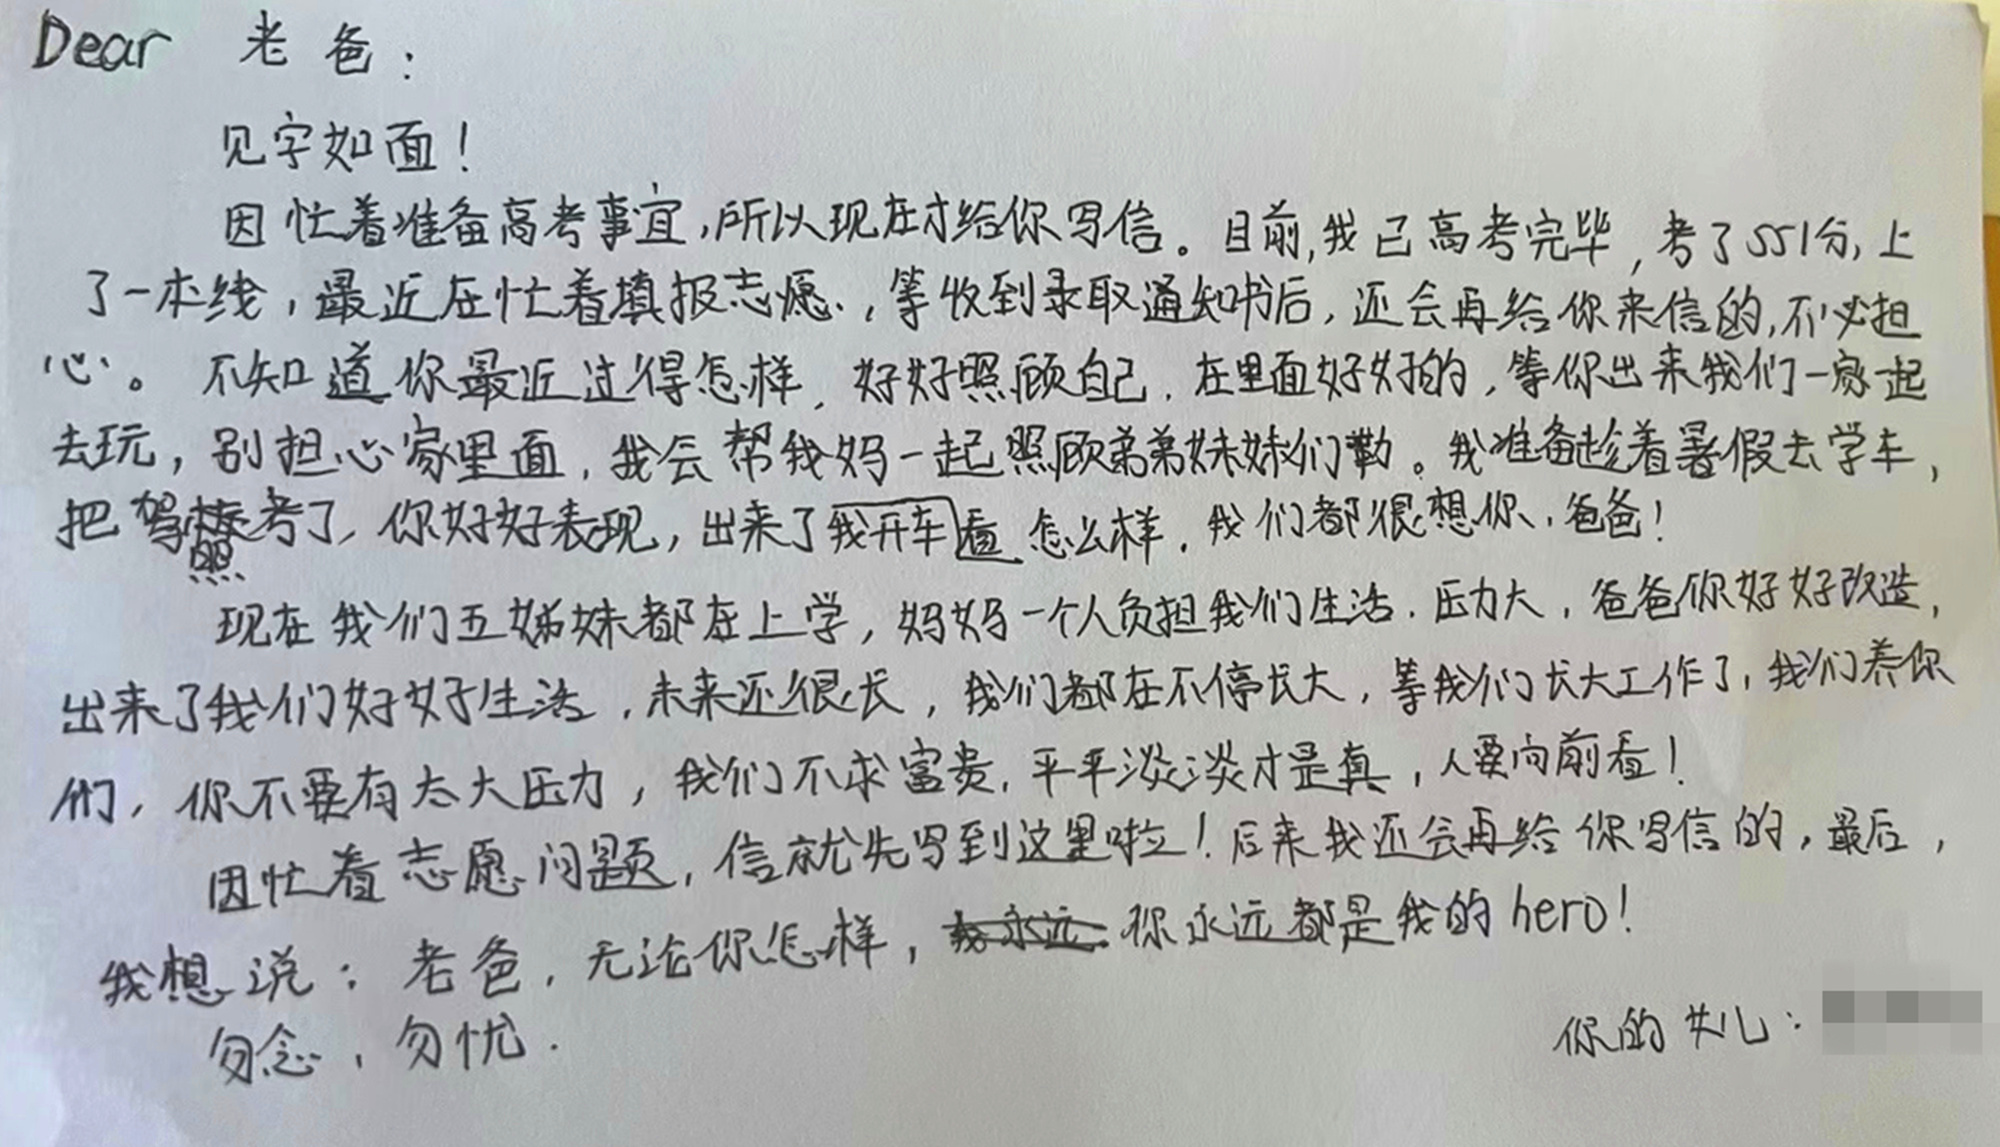 Dear 老爸：
见字如面！
因忙着准备高考事宜，所以现在才给你写信。目前，我已高考完毕，考了551分，上
了一本线，最近在忙着填报志愿，等收到录取通知书后，还会再给你来信的，不必担
心。不知道你最近过得怎样，好好照顾自己，在里面好好的，等你出来我们一家一起
去玩，别担心家里面，我会帮我妈一起照顾弟弟妹妹们勤。我准备趁着暑假去学车，
把驾照考了，你好好表现，出来了我开车看怎么样，我们都很想你，爸爸！
现在我们五姊妹都在上学，妈妈一个人负担我们生活．压力大，爸爸你好好改造，
出来了我们好好生活，未来还很长，我们都在不停长大，等我们长大工作了，我们养你
们，你不要有太大压力，我们不求富贵，平平淡淡才是真，人要向前看！
因忙着志愿问题，信就先写到这里啦！后来我还会再给你写信的，最后，
我想说：老爸，无论你怎样，你永远都是我的hero！
勿念，勿忧．
你的女儿：